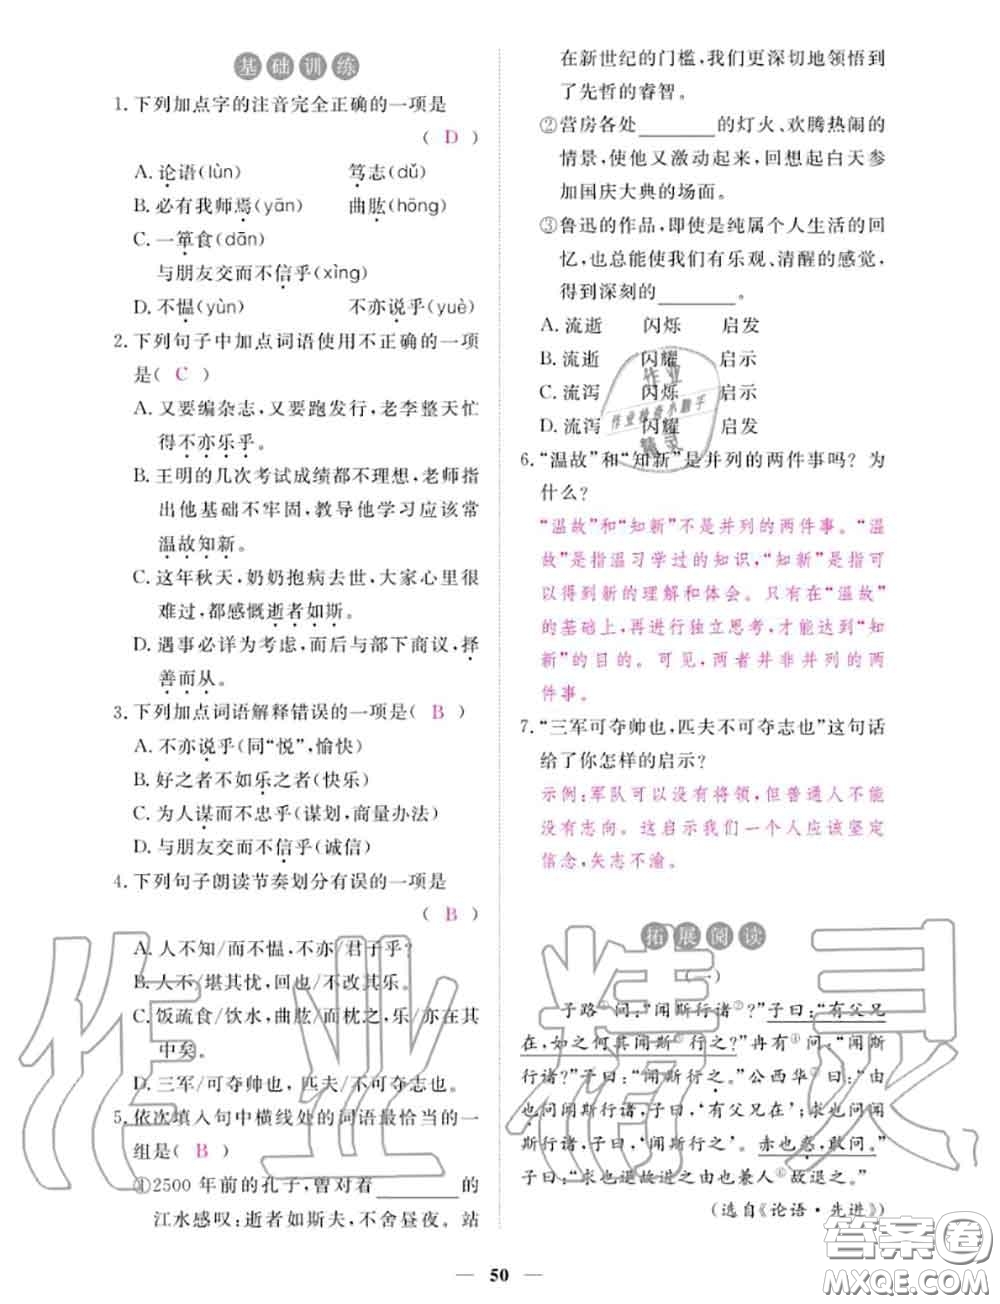 基础训练
1. 下列加点字的注音完全正确的一项是
( D )
A. 论语(lùn) 笃志(dǔ)
B. 必有我师焉(yān) 曲肱(hōng)
C. 一箪食(dān)
与朋友交而不信乎(xìng)
D. 不愠(yùn) 不亦说乎(yuè)
2. 下列句子中加点词语使用不正确的一项
是( C )
A. 又要编杂志，又要跑发行，老李整天忙
得不亦乐乎。
B. 王明的几次考试成绩都不理想，老师指
出他基础不牢固，教导他学习应该常
温故知新。
C. 这年秋天，奶奶抱病去世，大家心里很
难过，都感慨逝者如斯。
D. 遇事必详为考虑，而后与部下商议，择
善而从。
3. 下列加点词语解释错误的一项是( B )
A. 不亦说乎(同“悦”，愉快)
B. 好之者不如乐之者(快乐)
C. 为人谋而不忠乎(谋划，商量办法)
D. 与朋友交而不信乎(诚信)
4. 下列句子朗读节奏划分有误的一项是
( B )
A. 人不知/而不愠，不亦/君子乎？
B. 人不/堪其忧，回也/不改其乐。
C. 饭疏食/饮水，曲肱/而枕之，乐/亦在其
中矣。
D. 三军/可夺帅也，匹夫/不可夺志也。
5. 依次填入句中横线处的词语最恰当的一
组是( B )
①2500 年前的孔子，曾对着________的
江水感叹：逝者如斯夫，不舍昼夜。站
在新世纪的门槛，我们更深切地领悟到
了先哲的睿智。
②营房各处________的灯火、欢腾热闹的
情景，使他又激动起来，回想起白天参
加国庆大典的场面。
③鲁迅的作品，即使是纯属个人生活的回
忆，也总能使我们有乐观、清醒的感觉，
得到深刻的________。
A. 流逝 闪烁 启发
B. 流逝 闪耀 启示
C. 流泻 闪烁 启示
D. 流泻 闪耀 启发
6. “温故”和“知新”是并列的两件事吗？为
什么？
“温故”和“知新”不是并列的两件事。“温
故”是指温习学过的知识，“知新”是指可
以得到新的理解和体会。只有在“温故”
的基础上，再进行独立思考，才能达到“知
新”的目的。可见，两者并非并列的两
件事。
7. “三军可夺帅也，匹夫不可夺志也”这句话
给了你怎样的启示？
示例：军队可以没有将领，但普通人不能
没有志向。这启示我们一个人应该坚定
信念，矢志不渝。
拓展阅读
(一)
子路①问：“闻斯行诸②？”子曰：“有父兄
在，如之何其闻斯③行之？”冉有④问：“闻斯
行诸？”子曰：“闻斯行之。”公西华⑤曰：“由
也问闻斯行诸，子曰，‘有父兄在’；求也问闻
斯行诸，子曰，‘闻斯行之’。赤也惑，敢问。”
子曰：“求也退故进之由也兼人⑥故退之。”
(选自《论语·先进》)
50
作业精灵
作业检查小助手
答案圈
MXQE.COM